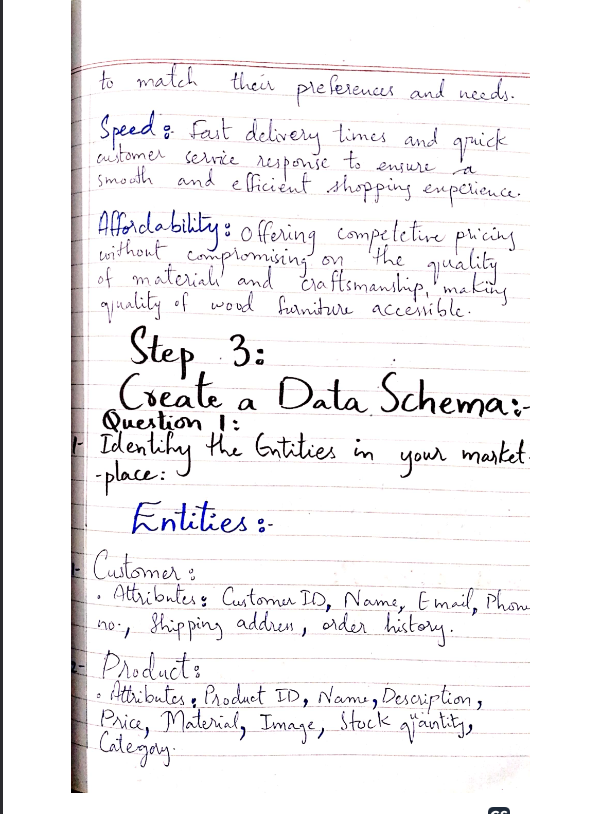 to match their preferences and needs.
Speed: Fast delivery times and quick
customer service response to ensure a
smooth and efficient shopping experience.
Affordability: Offering competetive pricing
without compromising on the quality
of materials and craftsmanship, making
quality of wood furniture accessible.
Step 3:
Create a Data Schema:-
Question 1:
1- Identify the Entities in your market
-place:
Entities:-
1- Customer:
• Attributes: Customer ID, Name, Email, Phone
no., Shipping address, order history.
2- Product:
• Attributes: Product ID, Name, Description,
Price, Material, Image, Stock quantity,
Category.
CS